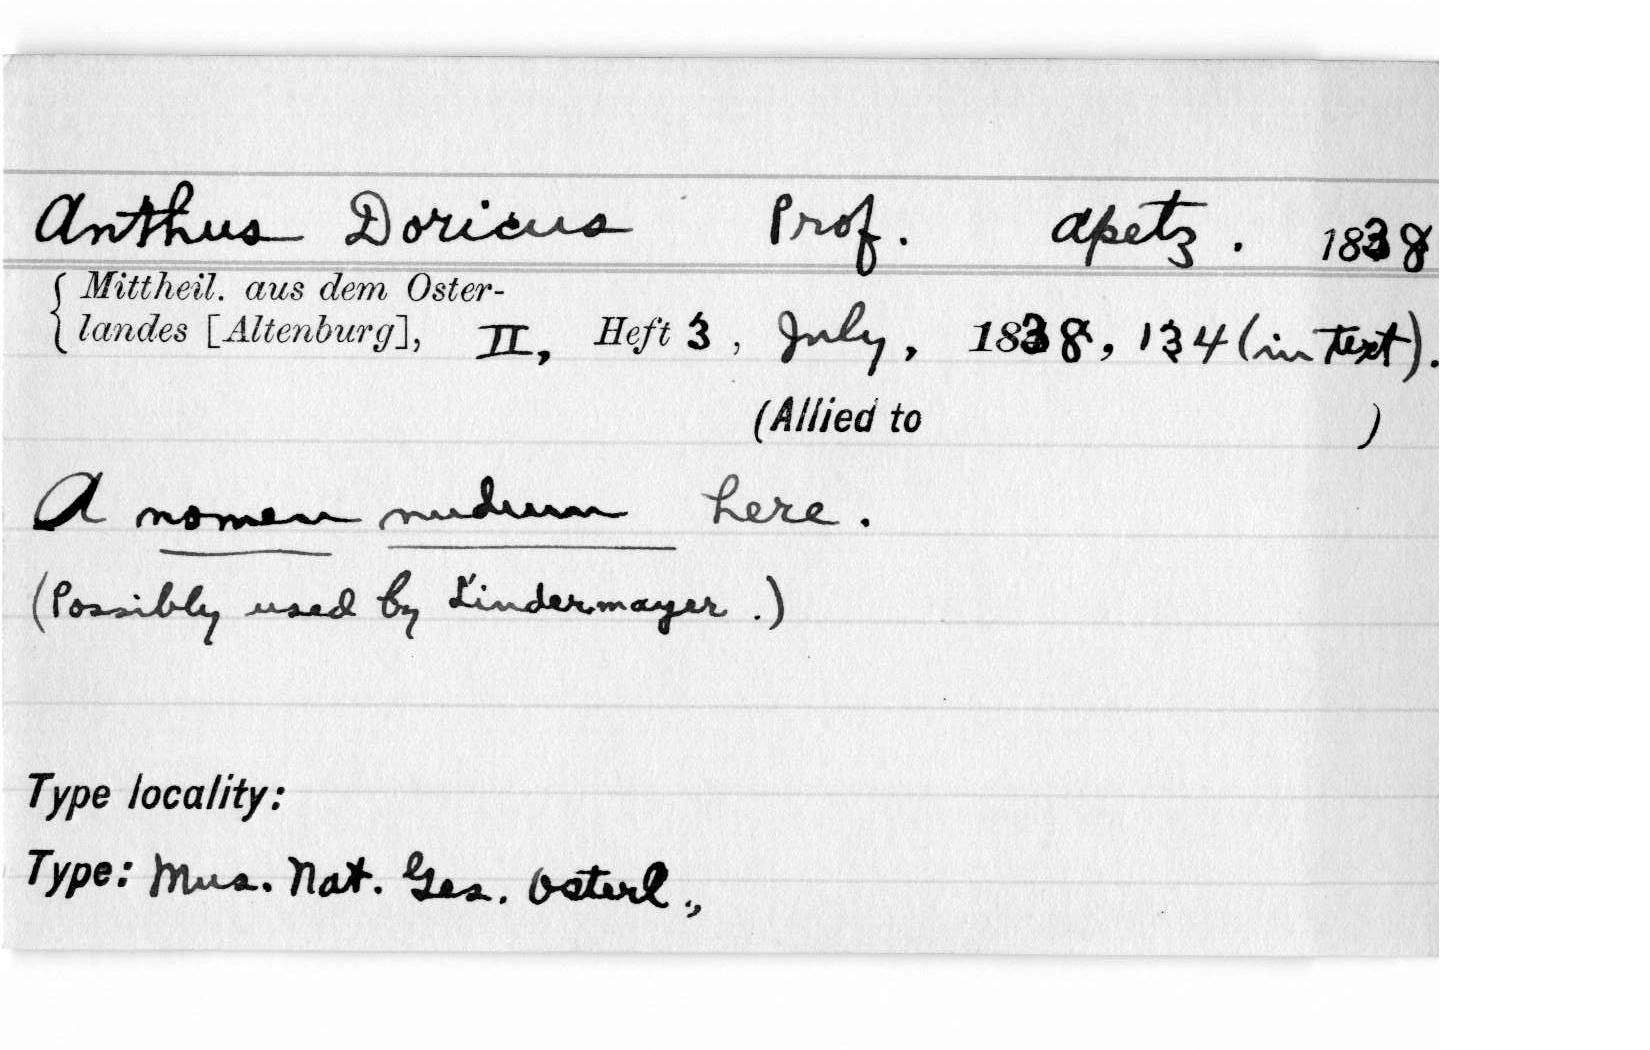 Anthus Doricus Prof. Apetz. 1838
Mittheil. aus dem Oster-
landes [Altenburg], II, Heft 3, July, 1838, 134 (in text).
(Allied to )
A nomen nudum here.
(Possibly used by Lindermayer.)
Type locality:
Type: Mus. Nat. Ges. Osterl.,